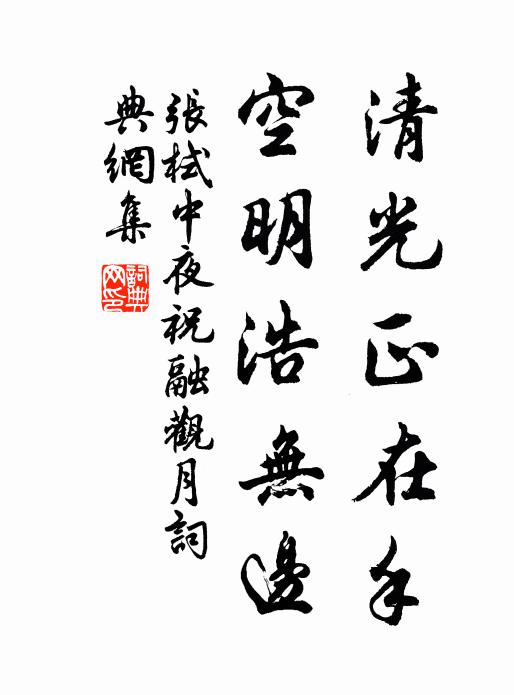 清光正在手
空明浩無邊
張栻中夜祝融觀月詞
典網集
詞典網印